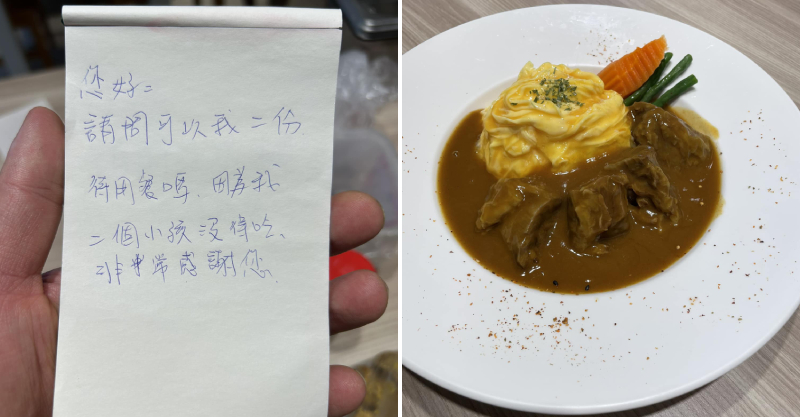 您好：
請問可以我二份
待用餐嗎. 因為我
二個小孩沒得吃、
非常感謝您